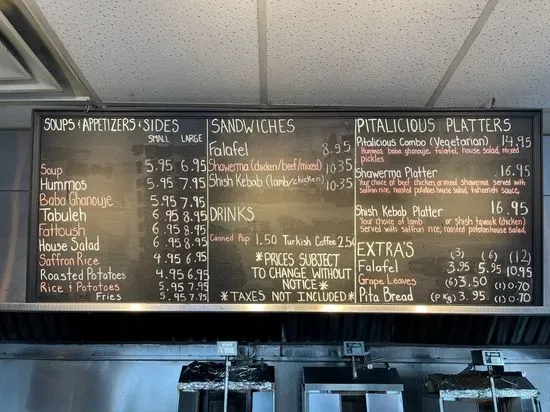 SOUPS & APPETIZERS & SIDES
SMALL LARGE
Soup 5.95 6.95
Hummos 5.95 7.95
Baba Ghanouje 5.95 7.95
Tabuleh 6.95 8.95
Fattoush 6.95 8.95
House Salad 6.95 8.95
Saffron Rice 4.95 6.95
Roasted Potatoes 4.95 6.95
Rice & Potatoes 5.95 7.95
Fries 5.95 7.95
SANDWICHES
Falafel 8.95
Shawerma (chicken/beef/mixed) 10.35
Shish Kebab (lamb/chicken) 10.35
DRINKS
Canned Pop 1.50 Turkish Coffee 2.50
*PRICES SUBJECT
TO CHANGE WITHOUT
NOTICE*
*TAXES NOT INCLUDED*
PITALICIOUS PLATTERS
Pitalicious Combo (Vegetarian) 14.95
Hummos, baba ghanouje, falafel, house salad, mixed
pickles
Shawerma Platter 16.95
Your choice of beef, chicken, or mixed shawerma served with
saffron rice, roasted potatoes house salad, tahini sauce,
Shish Kebab Platter 16.95
Your choice of lamb or shish tawook (chicken)
Served with saffron rice, roasted potatoes house salad,
EXTRA'S (3) (6) (12)
Falafel 3.95 5.95 10.95
Grape Leaves (6) 3.50 (1) 0.70
Pita Bread (PKg) 3.95 (1) 0.70